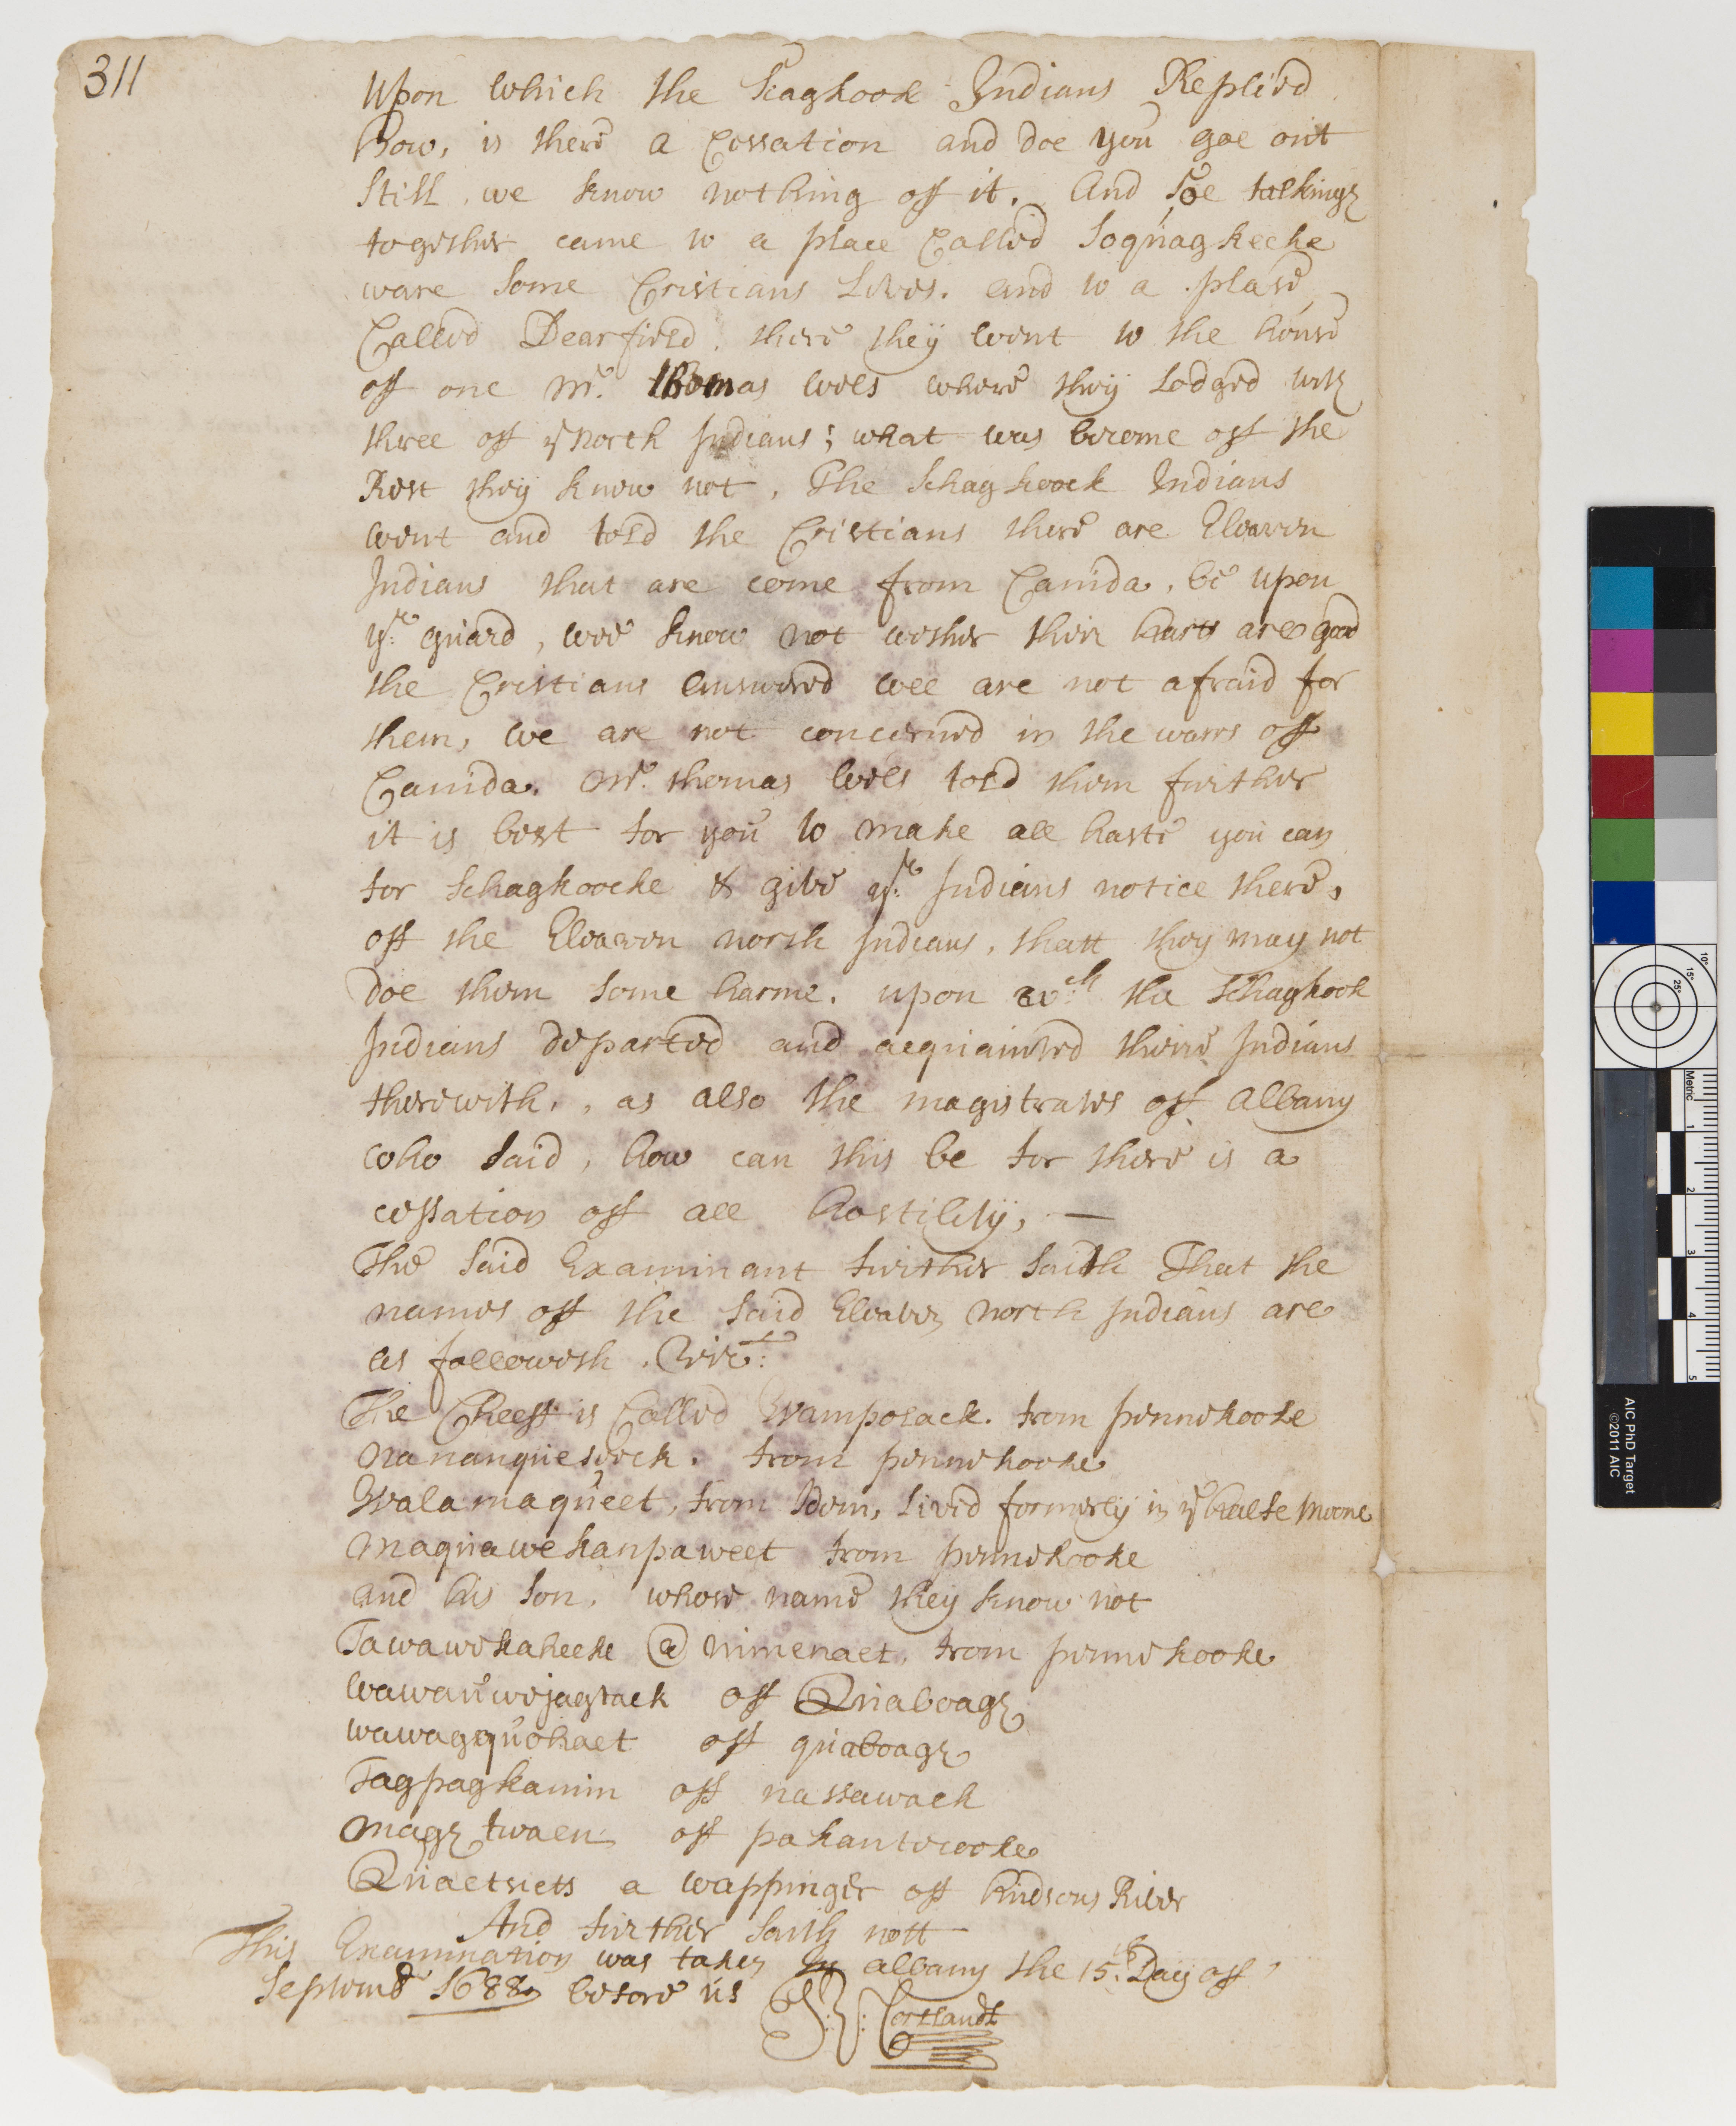 311
Upon which the Scaghook Indians Replied
How, is there a Cessation and doe you goe out
still, we know nothing off it. And soe talking
together came to a place Called Soquagheeke
ware some Cristians Lives. and to a place
Called Dearfield. there they went to the house
off one Mr. thomas wels where they Lodged with
three off ye North Indians; what was become off the
Rest they know not, The Schaghoock Indians
went and told the Cristians there are Eleaven
Indians that are come from Canida, be upon
yr guard, wee know not wether their harts are good
the Cristians answered wee are not afraid for
them, we are not concerned in the warrs off
Canida. Mr. thomas wels told them further
it is best for you to make all haste you can
for Schaghoocke & give yr Indians notice there,
off the Eleaven north Indians, thatt they may not
doe them some harme. upon wch the Schaghook
Indians departed and acquainted theire Indians
therewith, as also the magistrates off albany
who said, how can this be for there is a
cessation off all hostility, —
The said Examinant further saith That the
names off the said Eleaven North Indians are
as followeth. Vizt:
The Cheeff is Called Wampolack. from pennekooke
Nananqueseeck. from pennekooke
Walamaqueet, from Idem, Lived formerly in ye halfe Moone
Maquawekanpaweet from pennekooke
and his son, whose name they know not
Tawawekaheeke @ Nimenaet, from pennekooke
wawanuwejagtack off Quaboag
wawagquohaet off quaboag
Tagpaghkamin off nassawach
Magh twaen off pakantecooke
Quaetseits a wappinger off hudsons River
And further saith nott
This Examination was taken In albany the 15th. Day off
Septembr 1688 before us
S: V: Cortlandt
10° 15° 25°
Metric 1 2 3 4 5
AIC PhD Target
©2011 AIC